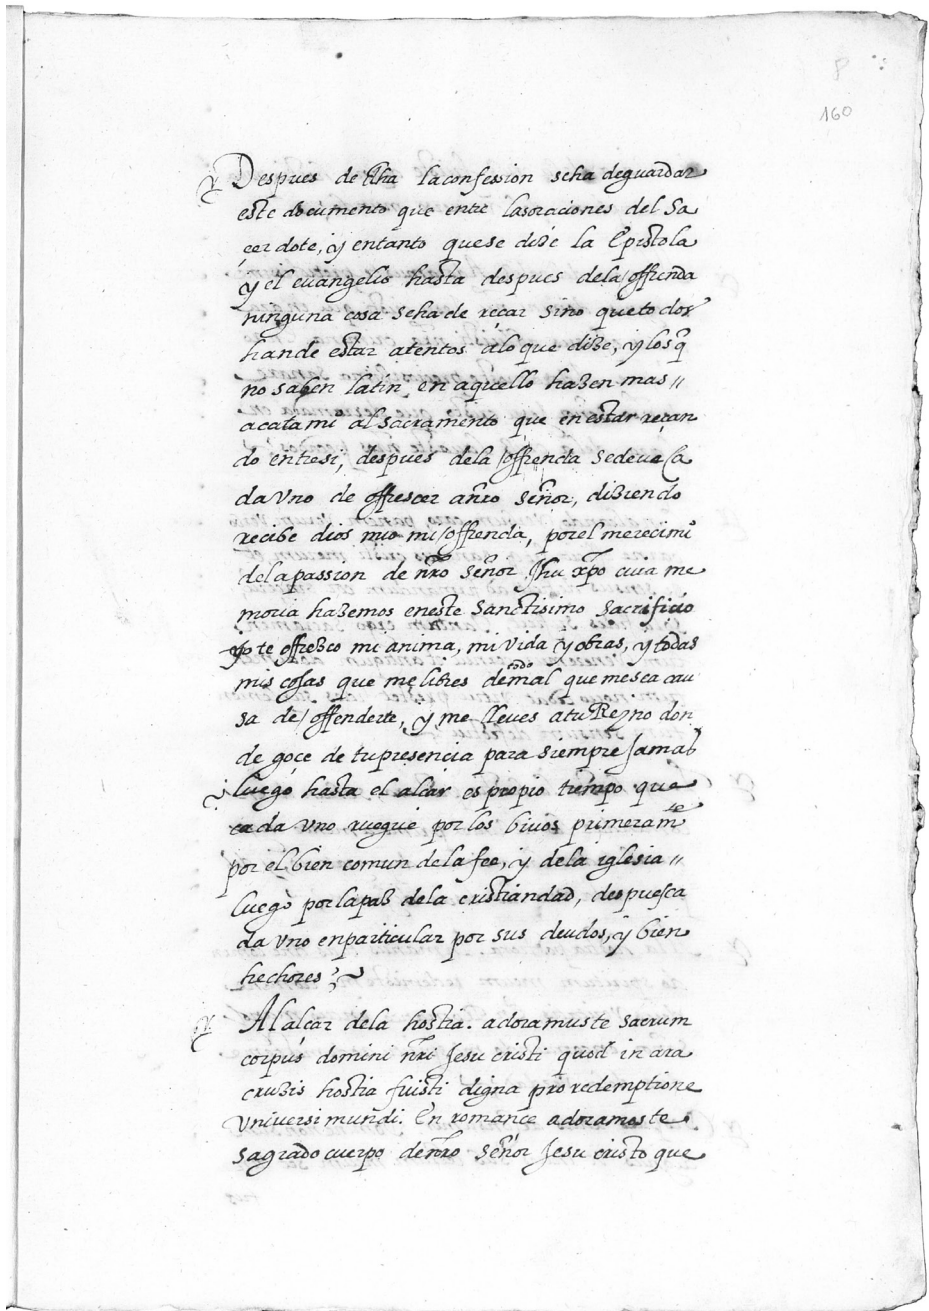 160
Despues de dha la confession seha de guardar
este documento que entre las oraciones del Sa
cerdote, y entanto que se dize la Epistola
y el euangelio hasta despues dela offrenda
ninguna cosa seha de reçar sino que todos
han de estar atentos alo que dize, y los q̃
no saben latin en aquello hazen mas //
acatamiº al sacramento que en estar reçan
do entresi, despues dela offrenda se deue ca
da vno de offrescer anr̃o Señor, diziendo
recibe dios mio mi offrenda, por el merecimiº
de la passion de nr̃o señor Jhu xp̃o cuia me
moria hazemos en este Sanctisimo sacrificio
yo te offrezco mi anima, mi vida y obras, y todas
mis cosas que me libres de todo mal que me sea cau
sa de offenderte, y me lleues a tu Reyno don
de goçe de tu presencia para siempre Jamas
luego hasta el alçar es propio tiempo que
cada vno ruegue por los biuos primeramte
por el bien comun de la fee, y de la iglesia //
luego por la paz de la cristiandad, despues ca
da vno en particular por sus deudos, y bien
hechores
Al alçar de la hostia. adoramus te sacrum
corpus domini nr̃i Jesu cristi quod in ara
cruzis hostia fuisti digna pro redemptione
vniuersi mundi. En romance adoramos te
sagrado cuerpo de nr̃o señor Jesu cristo que